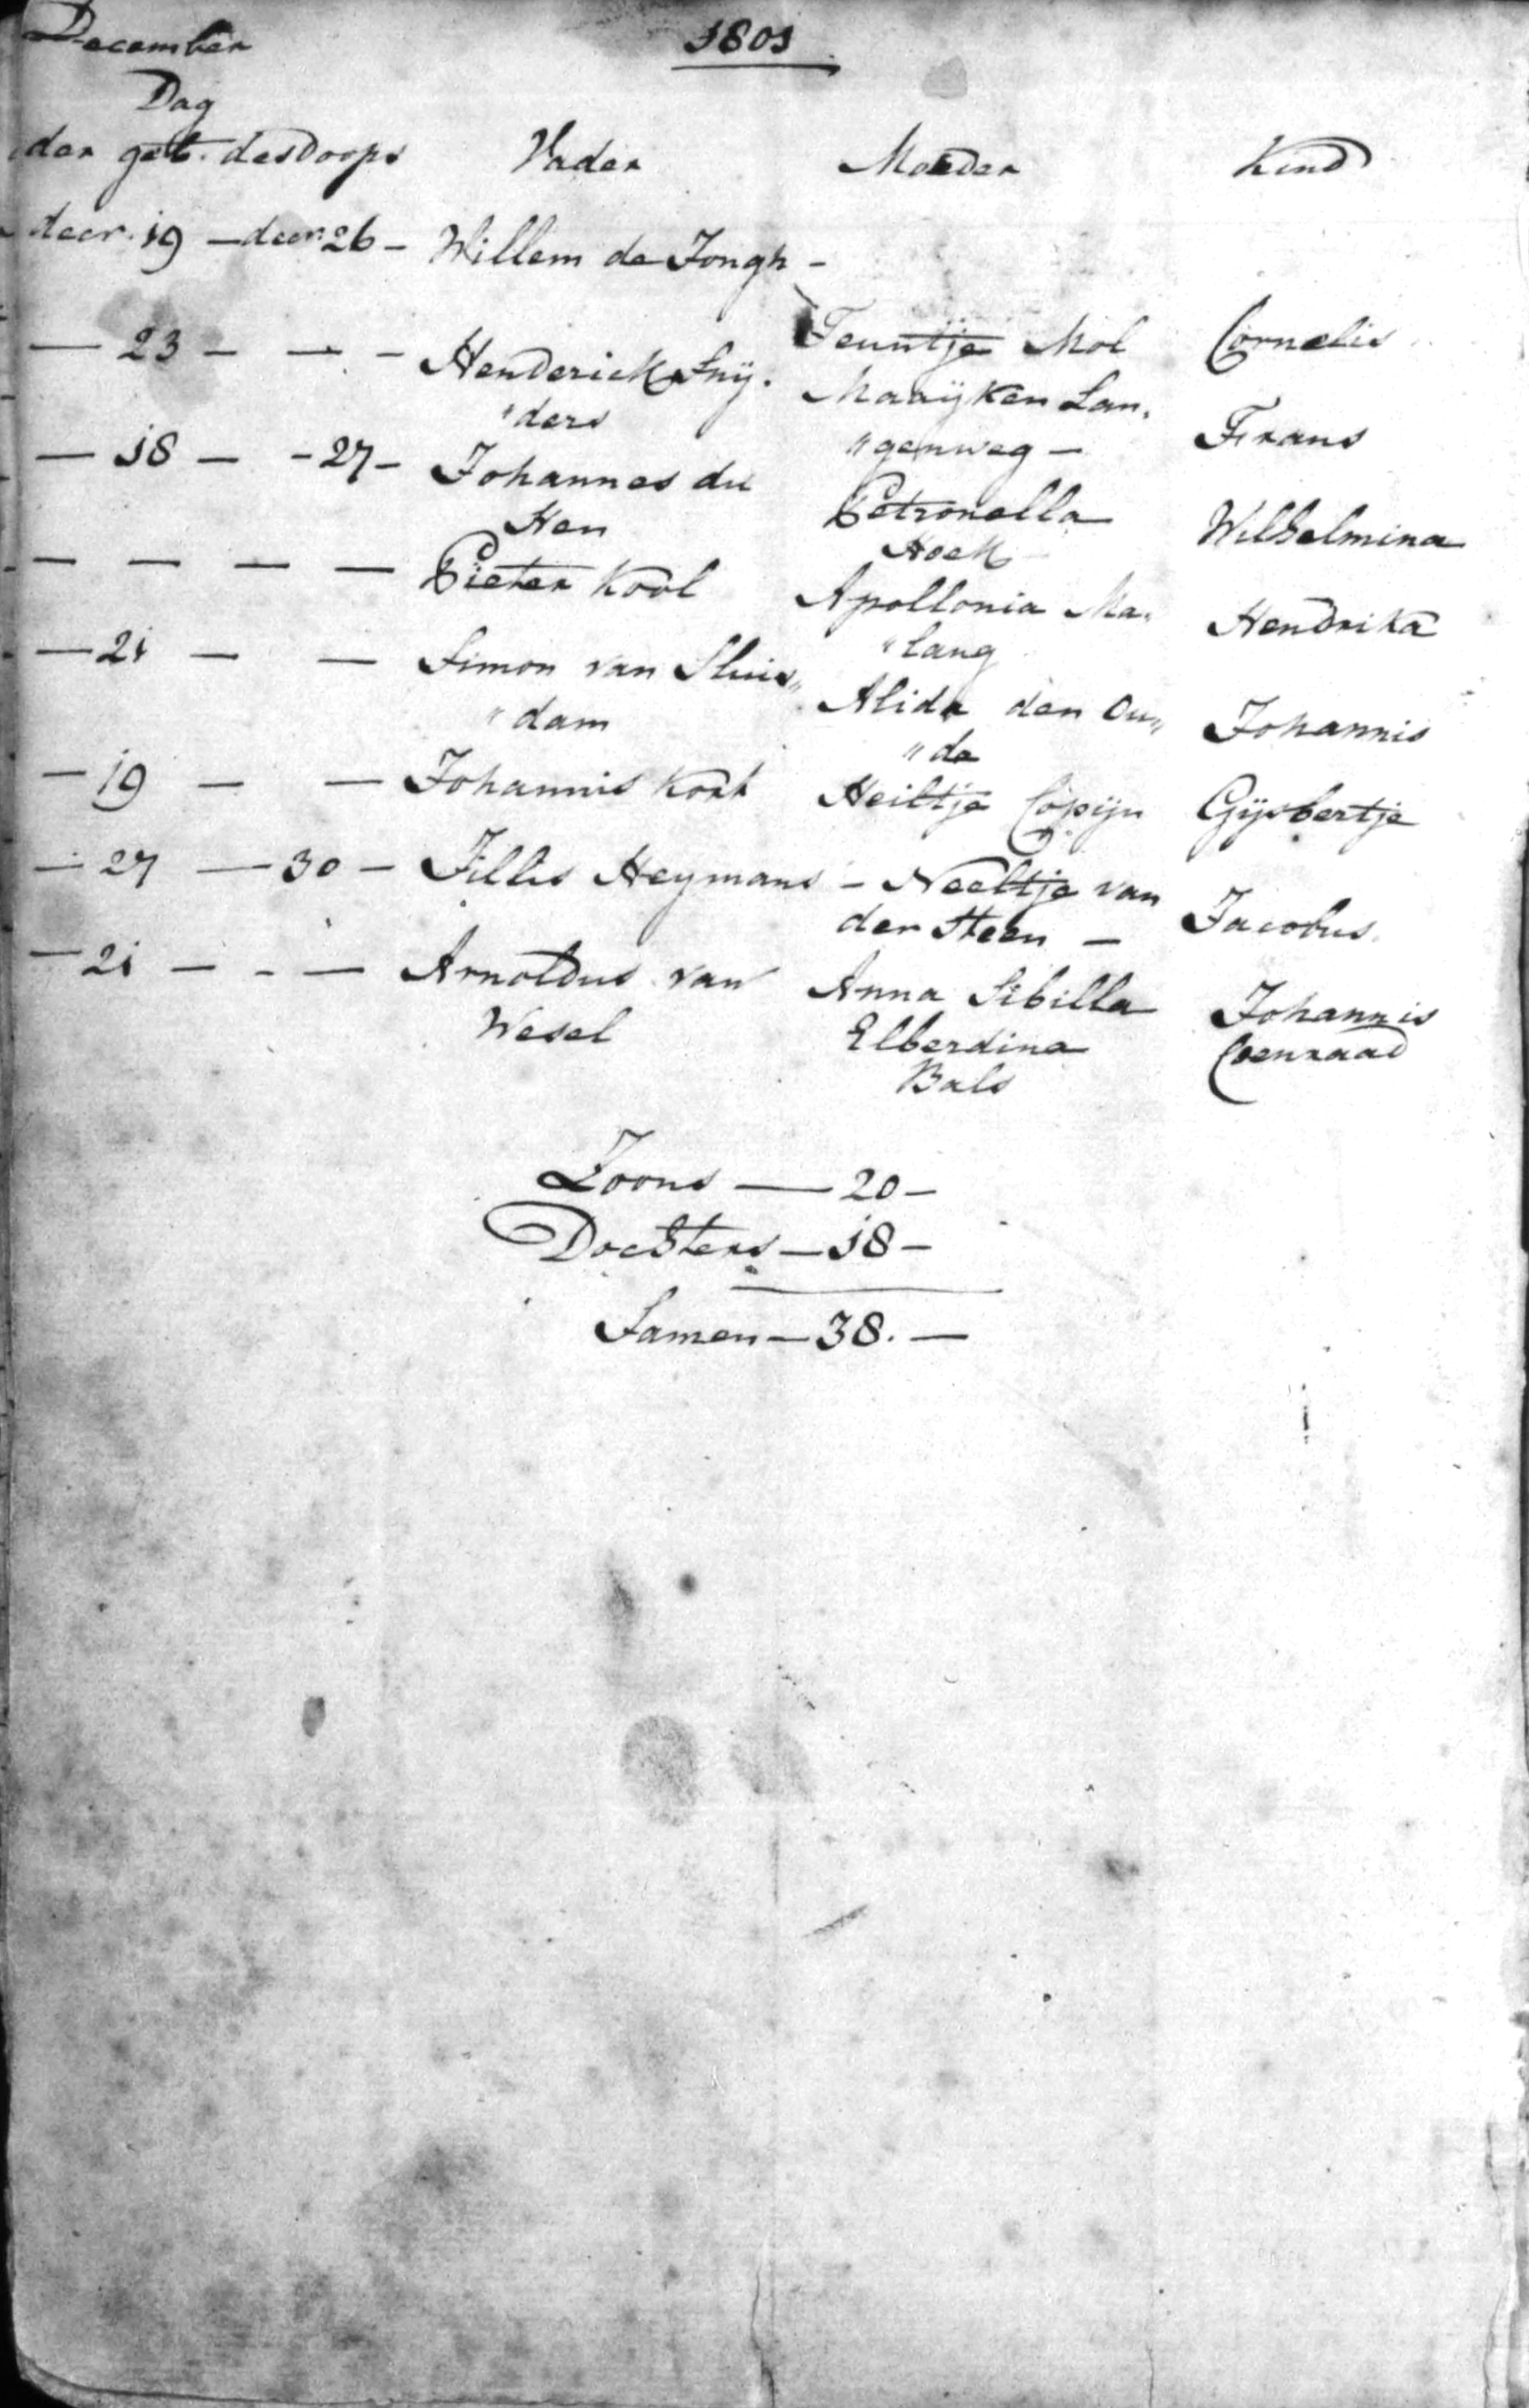 December 1801
Dag
der geb. des doops Vader Moeder Kind
decr. 19 — decr. 26 — Willem de Jongh —
Teuntje Mol Cornelis
— 23 — — — Henderick Snÿ.
"ders
Maaÿken Lan.
"genweg — Frans
— 18 — — 27 — Johannes du
Hen
Petronella
Hoek
Wilhelmina
— — — — Pieter Kool
Apollonia Ma.
"lang
Hendrika
— 21 — — Simon van Sluis„
"dam
Alida den Ou„
"de
Johannis
— 19 — — Johannis Kort Heiltje Copijn Gijsbertje
— 27 — 30 — Jillis Heymans — Neeltje van
der Steen —
Jacobus
— 21 — - — Arnoldus van
Wesel
Anna Sibilla
Elberdina
Bals
Johannis
Coenraad
Zoons — 20 —
Dochters — 18 —
Samen — 38. —